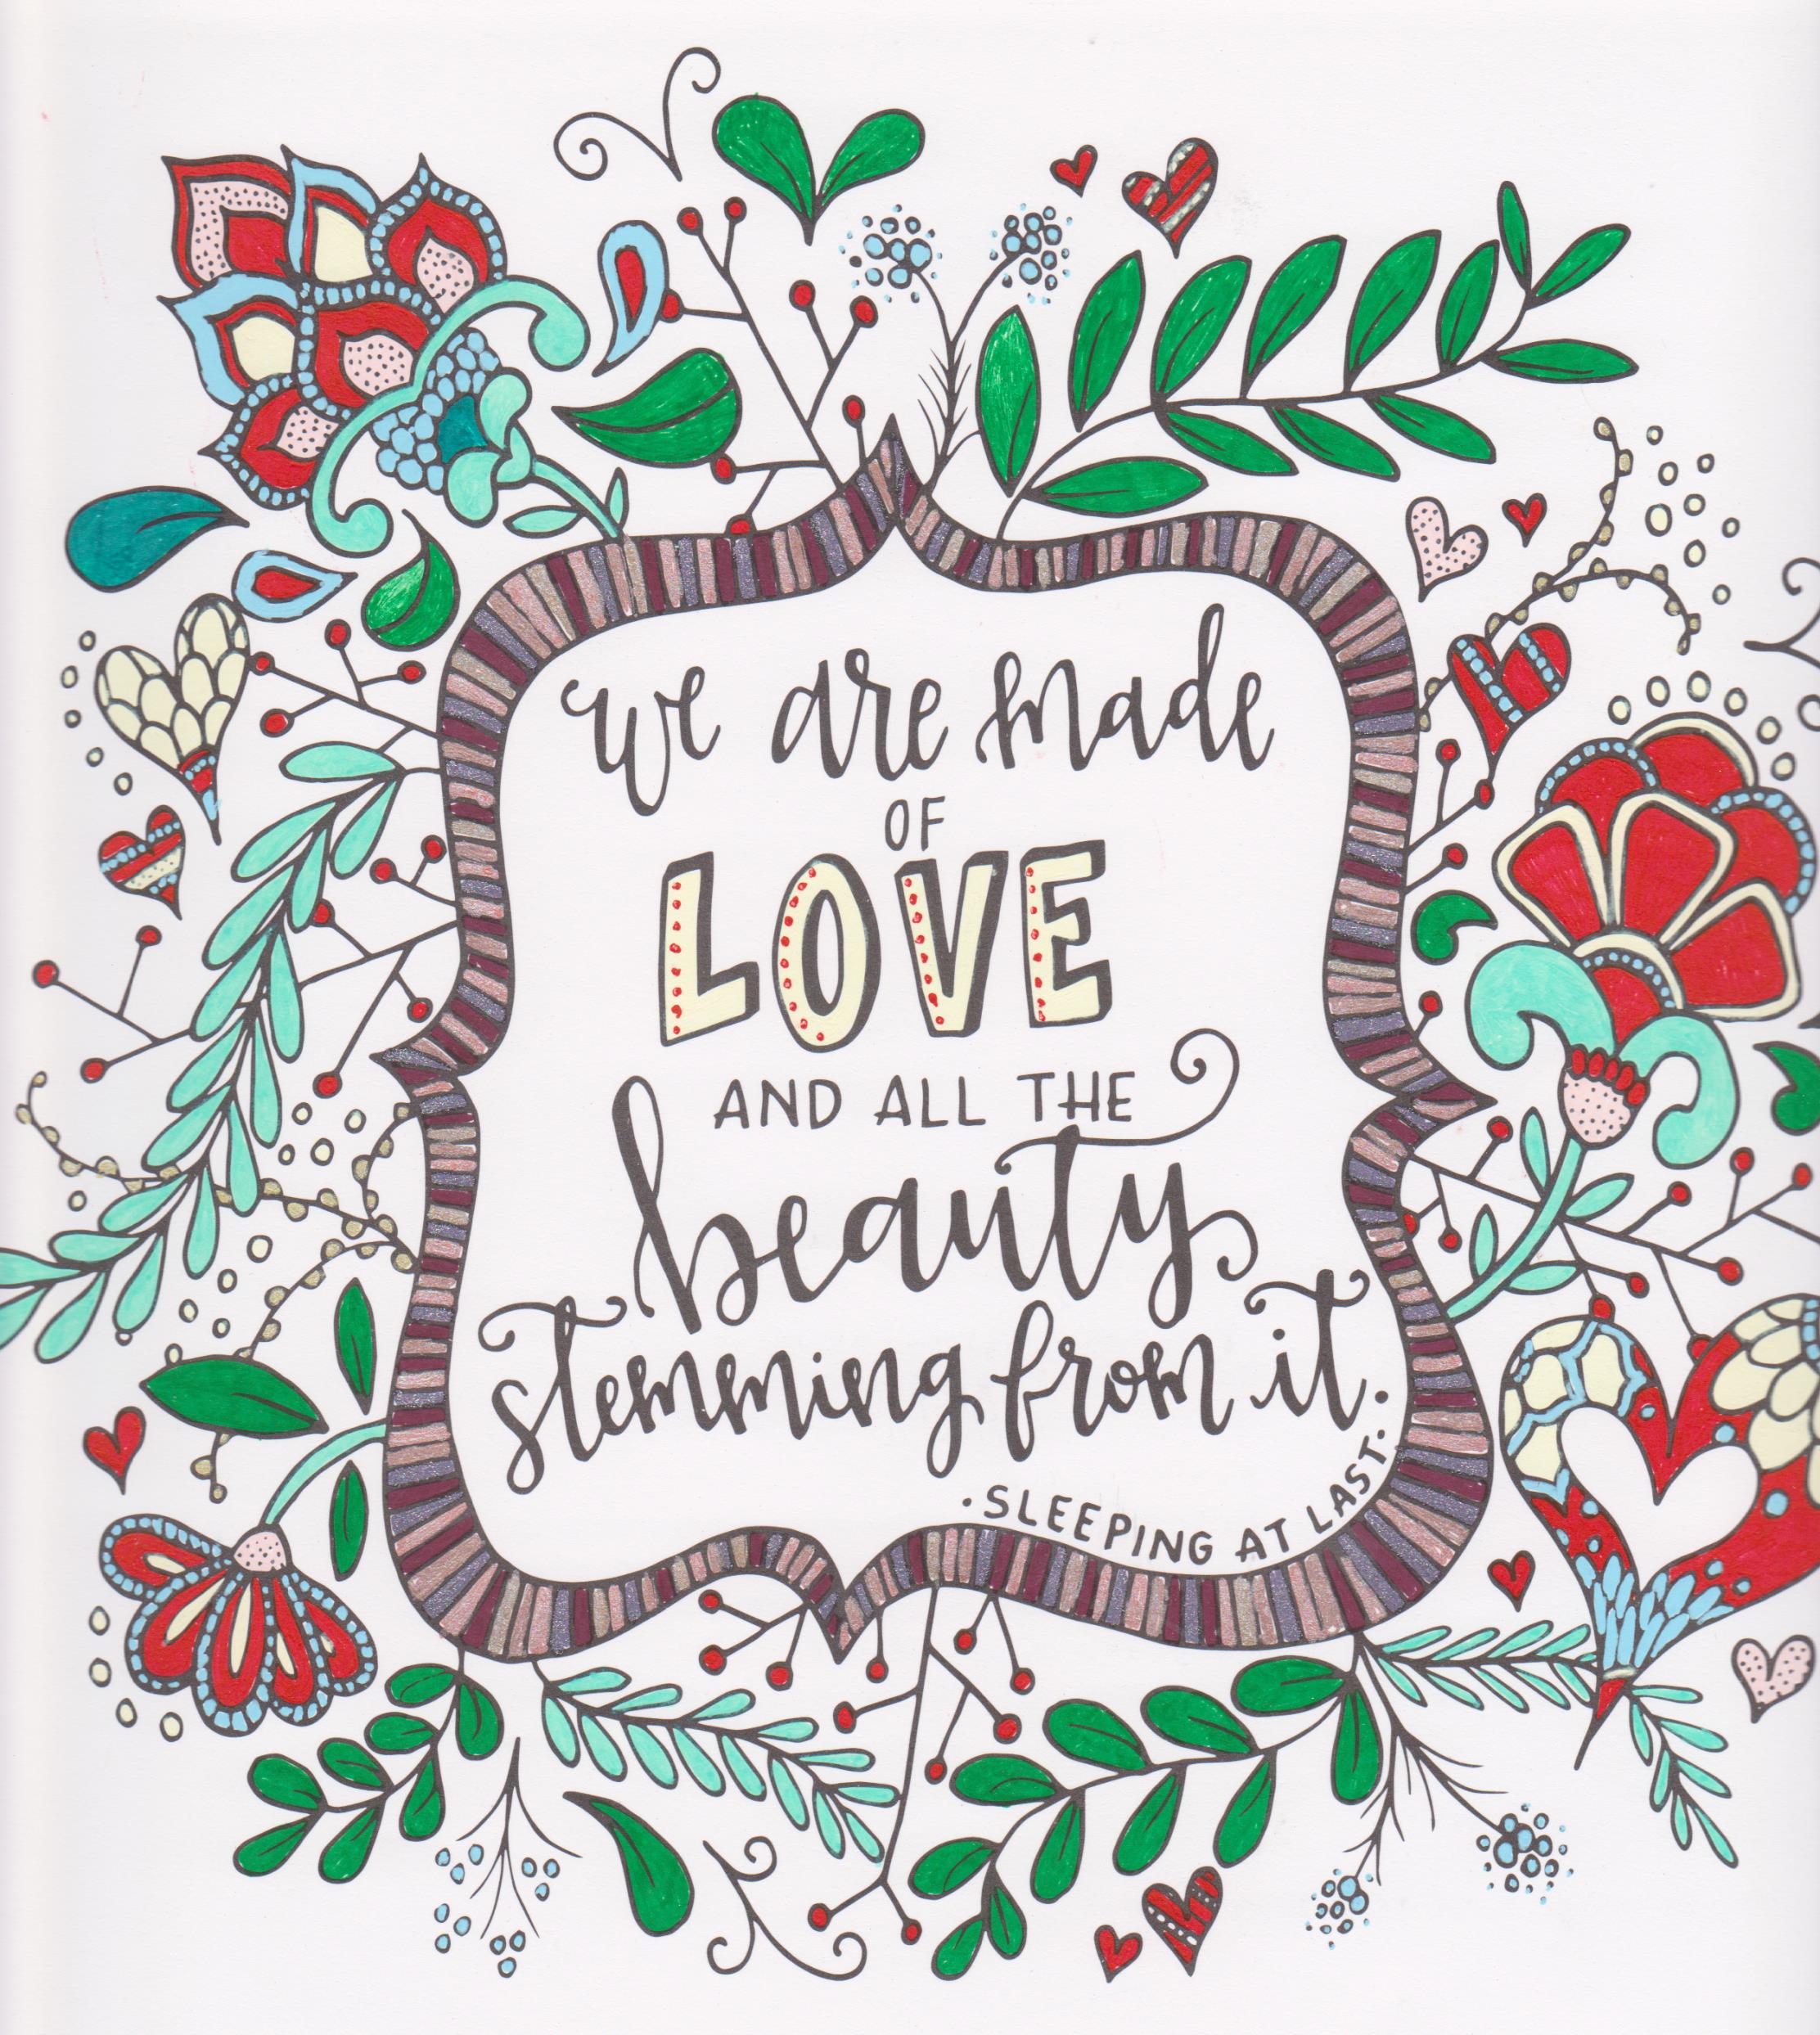 we are made
OF
LOVE
AND ALL THE
beauty
stemming from it.
·SLEEPING AT LAST·